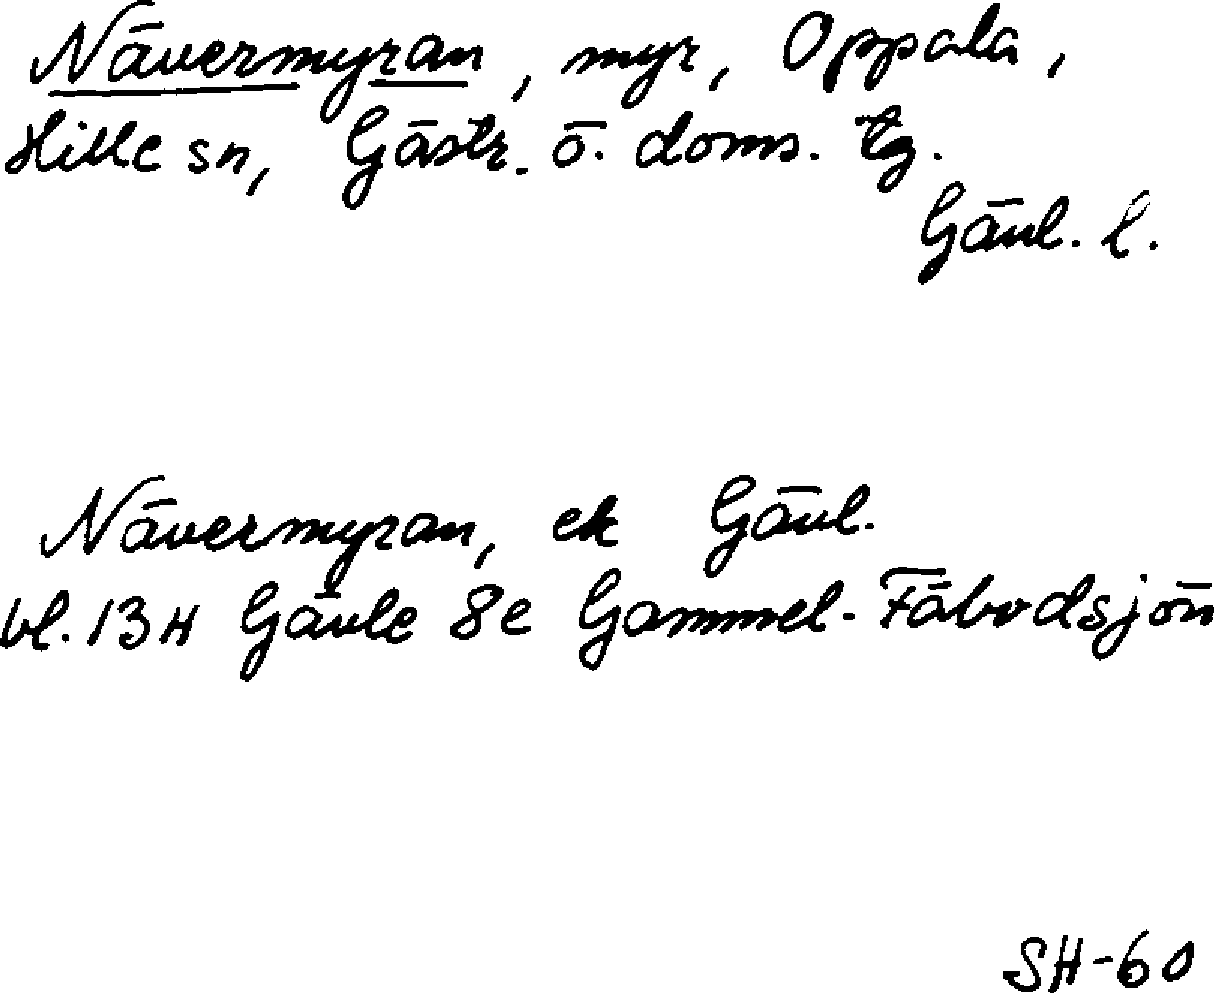 Nävermyran, myr, Oppala,
Hille sn, Gästr. ö. doms. tg.
Gävl. l.
Nävermyran, ek Gävl.
bl. 13H Gävle 8e Gammel-Fäbodsjön
SH-60